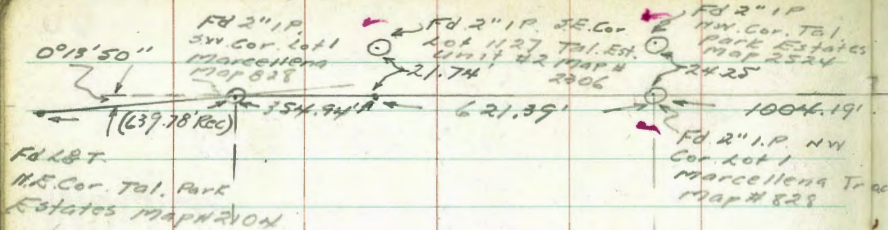 0°13'50"
Fd 2" I.P.
S.W. Cor. Lot 1
Marcellena
Map 828
Fd 2" I.P. S.E. Cor
Lot 1127 Tal. Est.
Unit #2 Map #
2306
21.74
Fd 2" I.P.
N.W. Cor. Tal
Park Estates
Map 2524
24.25'
(639.78' Rec)
354.94'
621.39'
1004.19'
Fd L&T.
N.E. Cor. Tal. Park
Estates Map #2104
Fd 2" I.P. NW
Cor. Lot 1
Marcellena Trac
Map #828